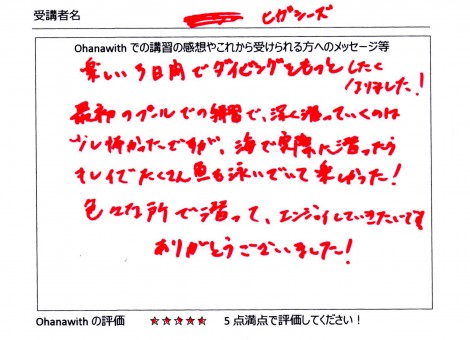 受講者名 ヒガシーズ
Ohanawith での講習の感想やこれから受けられる方へのメッセージ等
楽しい3日間でダイビングをもっとしたく
なりました！
最初のプールでの練習で、深く潜っていくのは
少し怖かったですが、海で実際に潜ったら
キレイでたくさん魚も泳いでいて楽しかった！
色々な所で潜って、エンジョイしていきたいです
ありがとうございました！
Ohanawith の評価 ★★★★★ 5 点満点で評価してください！